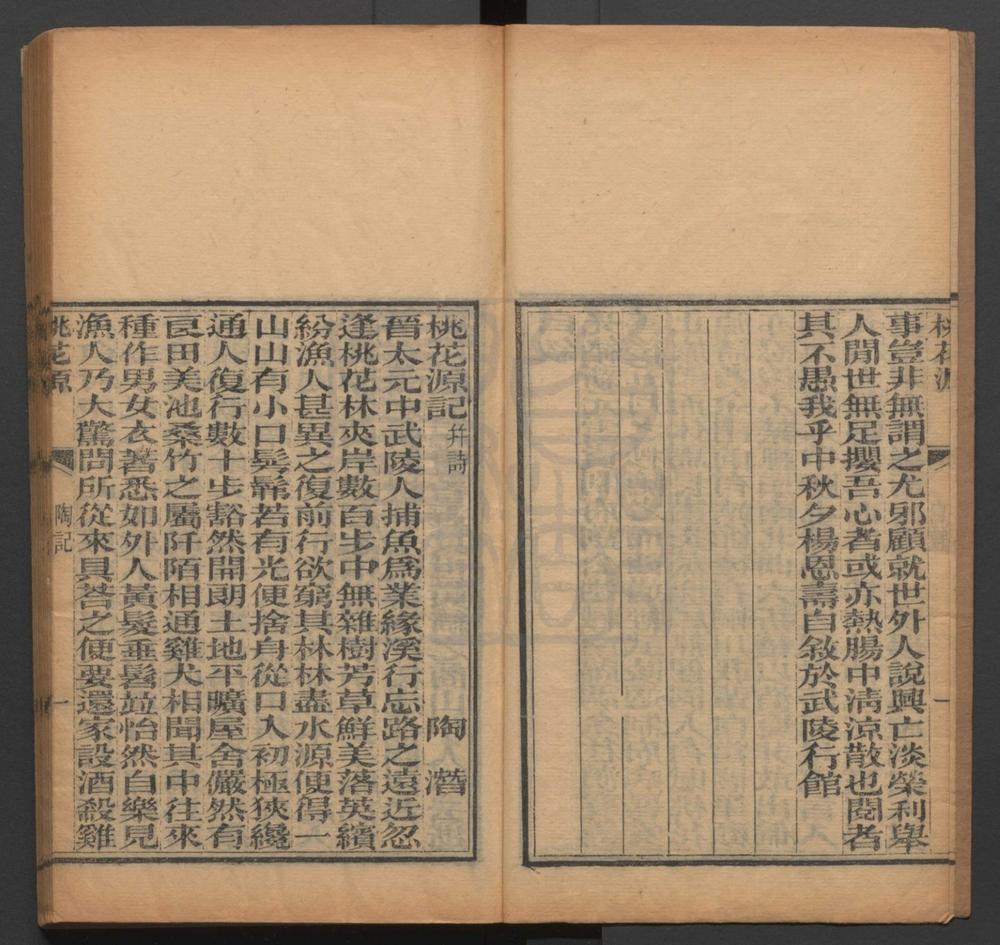 桃花源
一
事豈非無謂之尤邪顧就世外人說興亡淡榮利舉
人閒世無足攖吾心者或亦熱腸中淸涼散也閱者
其不愚我乎中秋夕楊恩壽自敘於武陵行館
桃花源記幷詩
陶潛
晉太元中武陵人捕魚爲業緣溪行忘路之遠近忽
逢桃花林夾岸數百步中無雜樹芳草鮮美落英繽
紛漁人甚異之復前行欲窮其林林盡水源便得一
山山有小口髣髴若有光便捨舟從口入初極狹纔
通人復行數十步豁然開朗土地平曠屋舍儼然有
良田美池桑竹之屬阡陌相通雞犬相聞其中往來
種作男女衣著悉如外人黃髮垂髫竝怡然自樂見
漁人乃大驚問所從來具荅之便要還家設酒殺雞
桃花源
陶記
一